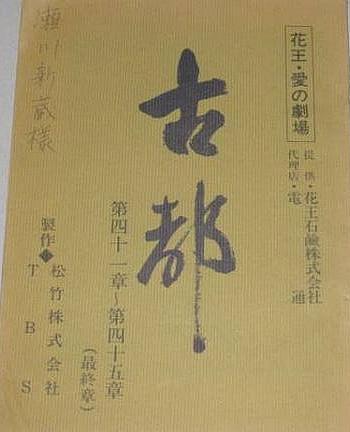 花王・愛の劇場
提供・花王石鹸株式会社
代理店・電通
古都
第四十一章~第四十五章
(最終章)
製作◆松竹株式会社
TBS
瀬川新蔵様